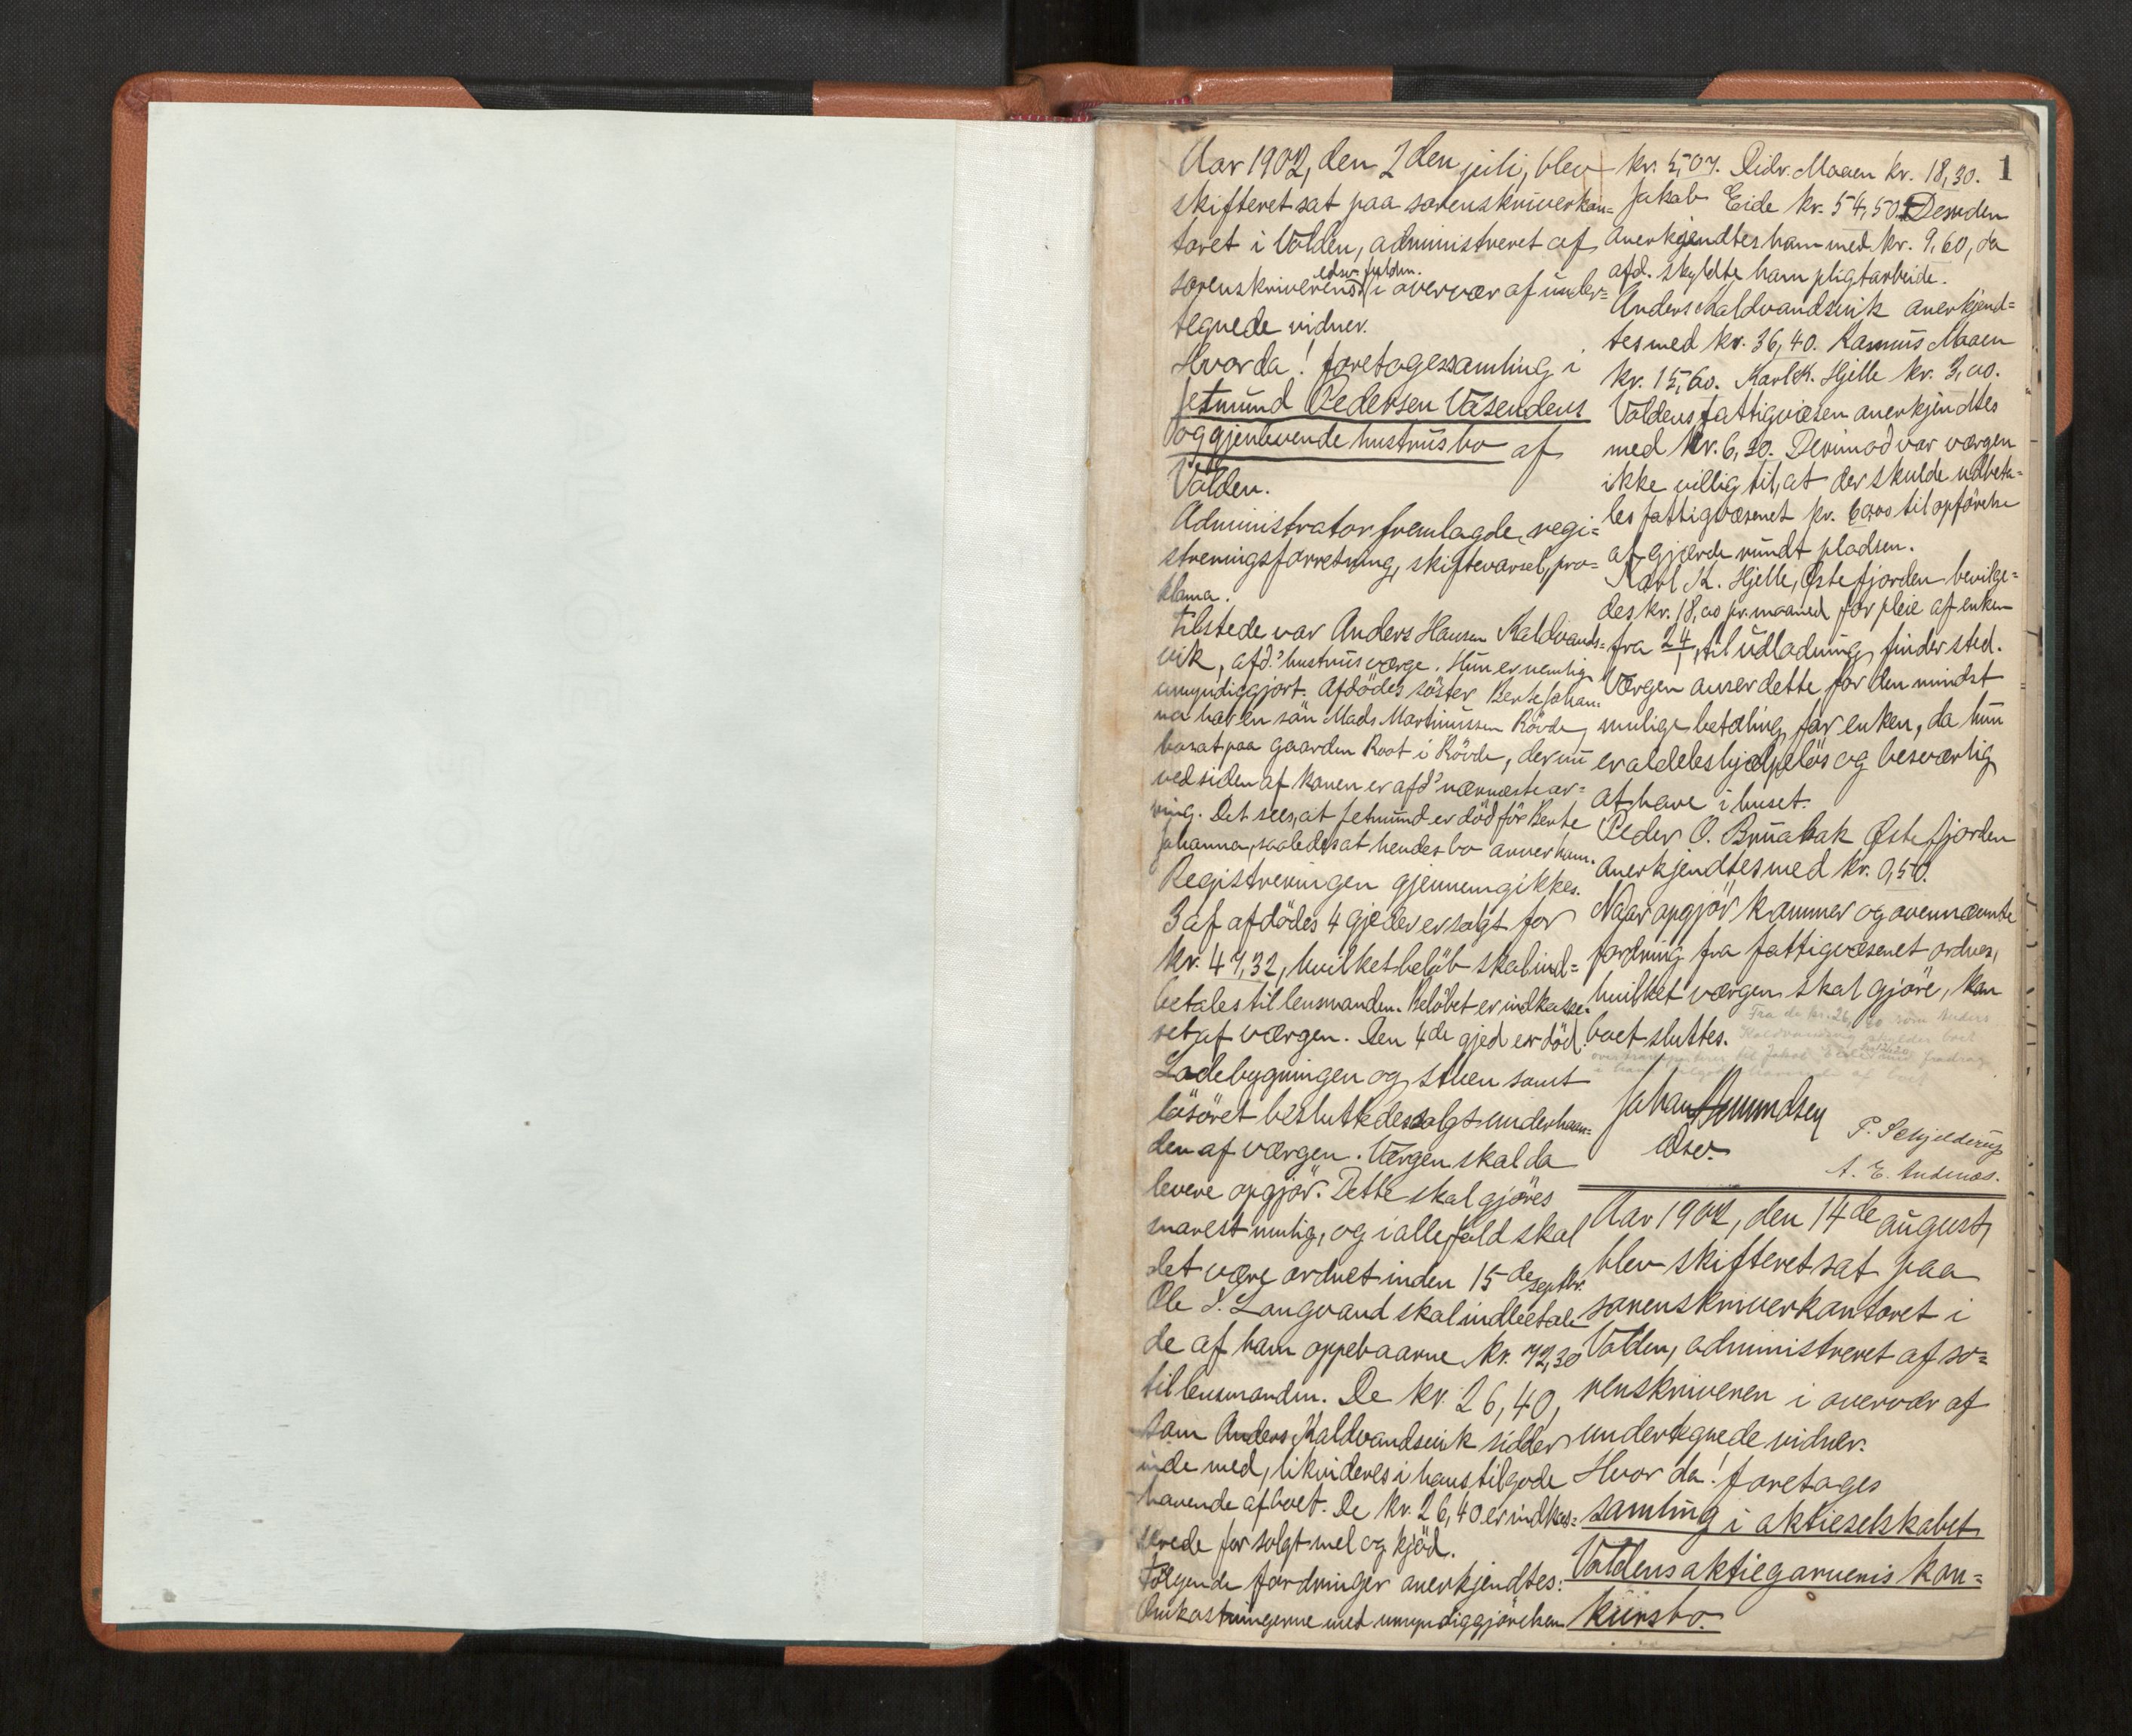 Aar 1902, den 2den juli, blev
skifteret sat paa sorenskriverkon=
toret i Volden, administreret af
sorenskriverens edsv. fuldm. i overvær af under=
tegnede vidner.
Hvorda! foretoges samling i
Jetmund Pedersen Vasendens
og gjenlevende hustrus bo af
Volden.
Administrator fremlagde regi=
streringsforretning, skiftevarsel, pro=
klama.
Tilstede var Anders Hansen Kaldvands=
vik, afd.s hustrus værge. Hun er nemlig
umyndiggjort. Afdödes söster Berte Johan=
na har en sön Mads Martinussen Rövde,
bosat paa gaarden Root i Rövde, der nu
ved siden af konen er afd.s nærmeste ar=
ving. Det sees, at Jetmund er död för Berte
Johanna, saaledes at hendes bo arver ham.
Registreringen gjennemgikkes.
3 af afdödes 4 gjeder er solgt for
kr. 47,32, hvilket belöb skal ind=
betales til lensmanden. Belöbet er indkasse=
ret af værgen. Den 4de gjed er död.
Ladebygningen og stuen samt
lösöret besluttedes solgt underhaan=
den af værgen. Værgen skal da
levere opgjör. Dette skal gjöres
snarest mulig, og i alle fald skal
det være ordnet inden 15de septbr.
Ole P. Langvand skal indbetale
de af ham oppebaarne kr. 72,30
til lensmanden. De kr. 26,40,
som Anders Kaldvandsvik sidder
inde med, likvideres i hans tilgode
havende af boet. De kr. 26,40 er indkas=
serede for solgt mel og kjöd.
Fölgende fordringer anerkjendtes:
Omkostningerne med umyndiggjörelsen
kr. 5,07. Didr. Maaen kr. 18,30. 1
Jakob Eide kr. 54,50. Desuden
anerkjendtes ham med kr. 9,60, da
afd. skyldte ham pligtarbeide.
Anders Kaldvandsvik anerkjend=
tes med kr. 36,40. Rasmus Maaen
kr. 15,60. Karl K. Hjelle kr. 3,00.
Voldens fattigvæsen anerkjendtes
med kr. 6,30. Derimod var værgen
ikke villig til, at der skulde udbeta=
les fattigvæsenet kr. 60,00 til opförelse
af gjærde rundt pladsen.
Karl K. Hjelle, Østefjorden bevilge=
des kr. 18,00 pr. maaned for pleie af enken
fra 24/1, til udlodning finder sted.
Værgen anser dette for den mindst
mulige betaling for enken, da hun
er aldeles hjælpelös og besværlig
at have i huset.
Peder O. Bruabak Østefjorden
anerkjendtes med kr. 0,50.
Naar opgjör kommer og ovennævnte
fordring fra fattigvæsenet ordnes,
hvilket værgen skal gjöre, kan
boet sluttes.
Fra de kr. 26,40 som Anders
Kaldvandsvik skylder boet
Johan Amundsen
edsv.
P. Schjelderup
A. E. Andenæs.
Aar 1902, den 14de august,
blev skifteret sat paa
sorenskriverkontoret i
Volden, administreret af so=
renskriveren i overvær af
undertegnede vidner.
Hvor da! foretoges
samling i aktieselskabet
Voldens aktiegarveris kon=
kursbo.